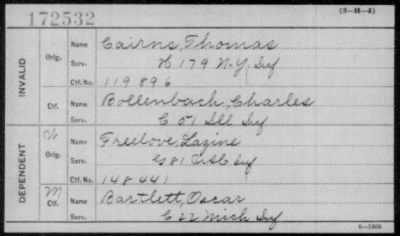 172532
(3-H-4)
INVALID
Orig.
Name Cairns, Thomas
Serv. K 179 N.Y. Inf
Ctf. No. 119 896
Ctf.
Name Bollenbach, Charles
Serv. C 51 Ill Inf
DEPENDENT
W
Orig.
Name Freelove, Lazine
Serv. G 81 Inf
Ctf. No. 148 441
M
Ctf.
Name Bartlett, Oscar
Serv. C 22 Mich Inf
6-3305